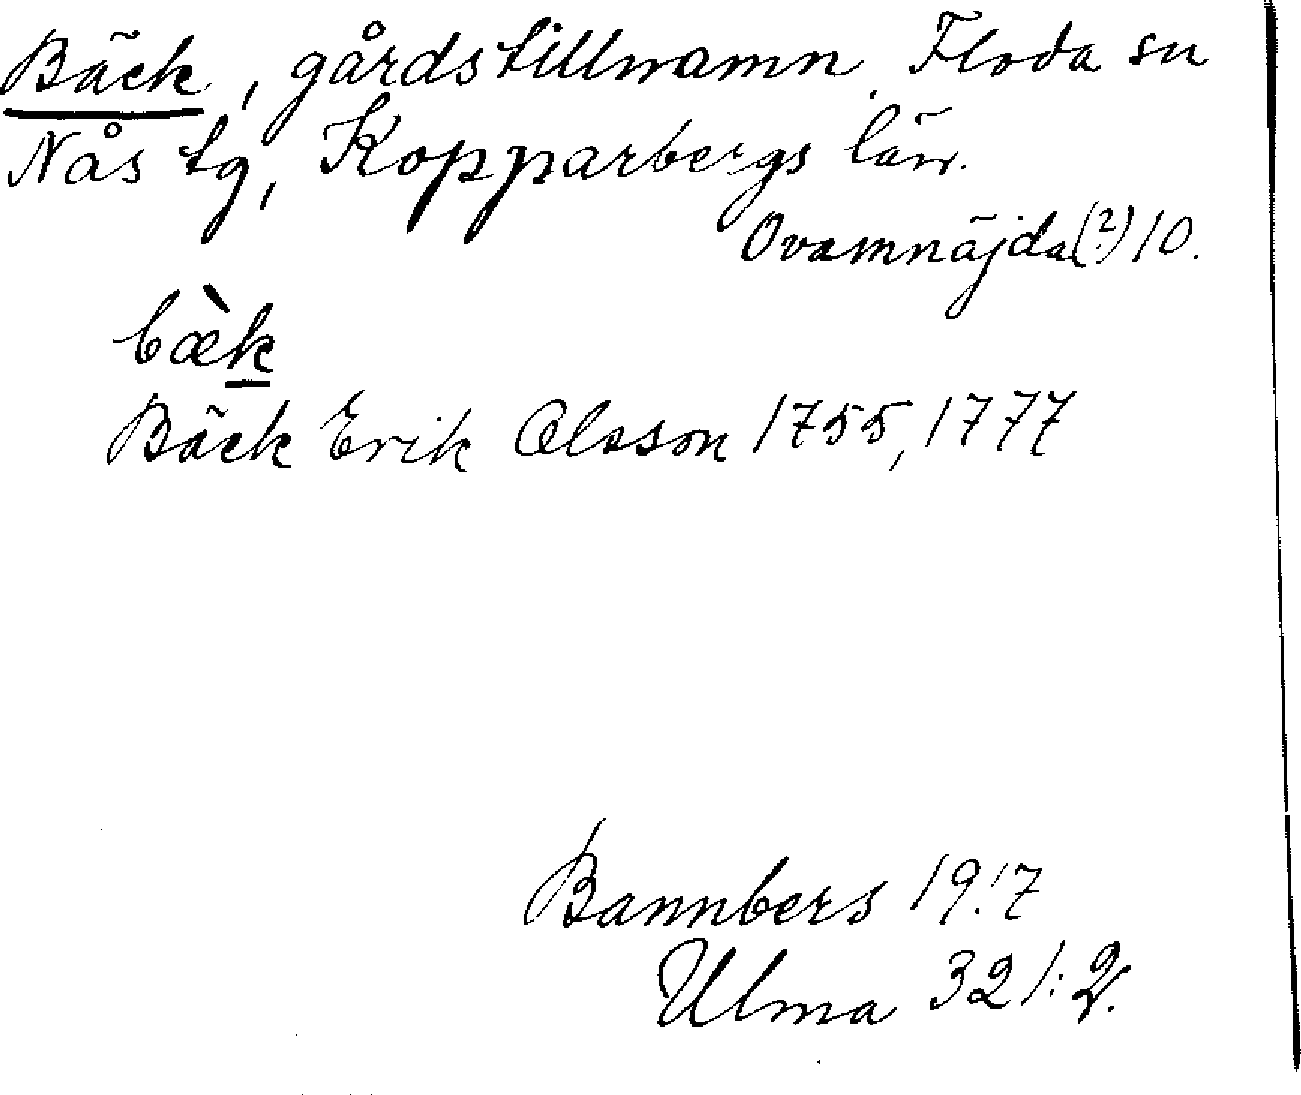 Bäck, gårdstillnamn Floda sn
Nås tg, Kopparbergs län.
Ovamnäjda(?) 10.
bæ̀k
Bäck Erik Olsson 1755, 1777
Bannbers 1917
Ulma 321:2.